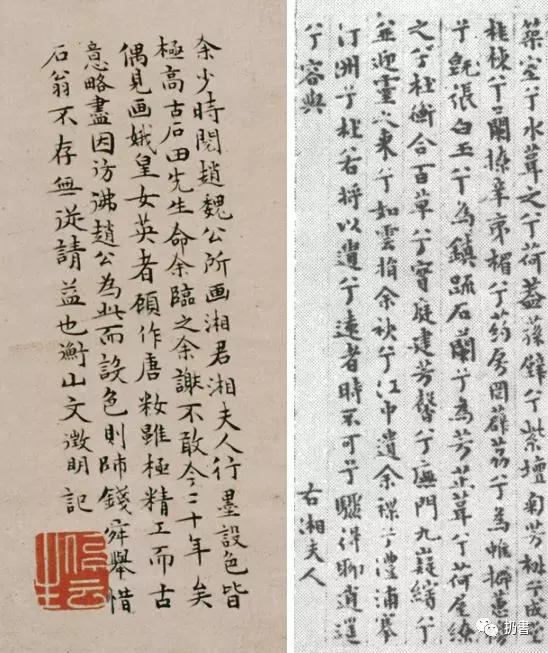 余少時閱趙魏公所画湘君湘夫人行墨設色皆
極高古石田先生命余臨之余謝不敢今二十年矣
偶見画娥皇女英者顧作唐妝雖極精工而古
意略盡因彷彿趙公為此而設色則師錢舜舉惜
石翁不存無從請益也衡山文徵明記
築室兮水葺之兮荷蓋蓀壁兮紫壇匊芳椒兮成堂
桂棟兮蘭橑辛夷楣兮葯房罔薜荔兮為帷擗蕙櫋
兮既張白玉兮為鎮疏石蘭兮為芳芷葺兮荷屋繚
之兮杜衡合百草兮實庭建芳馨兮廡門九嶷繽兮
並迎靈之來兮如雲捐余袂兮江中遺余褋兮澧浦搴
汀洲兮杜若將以遺兮遠者時不可兮驟得聊逍遙
兮容與
右湘夫人
扔書